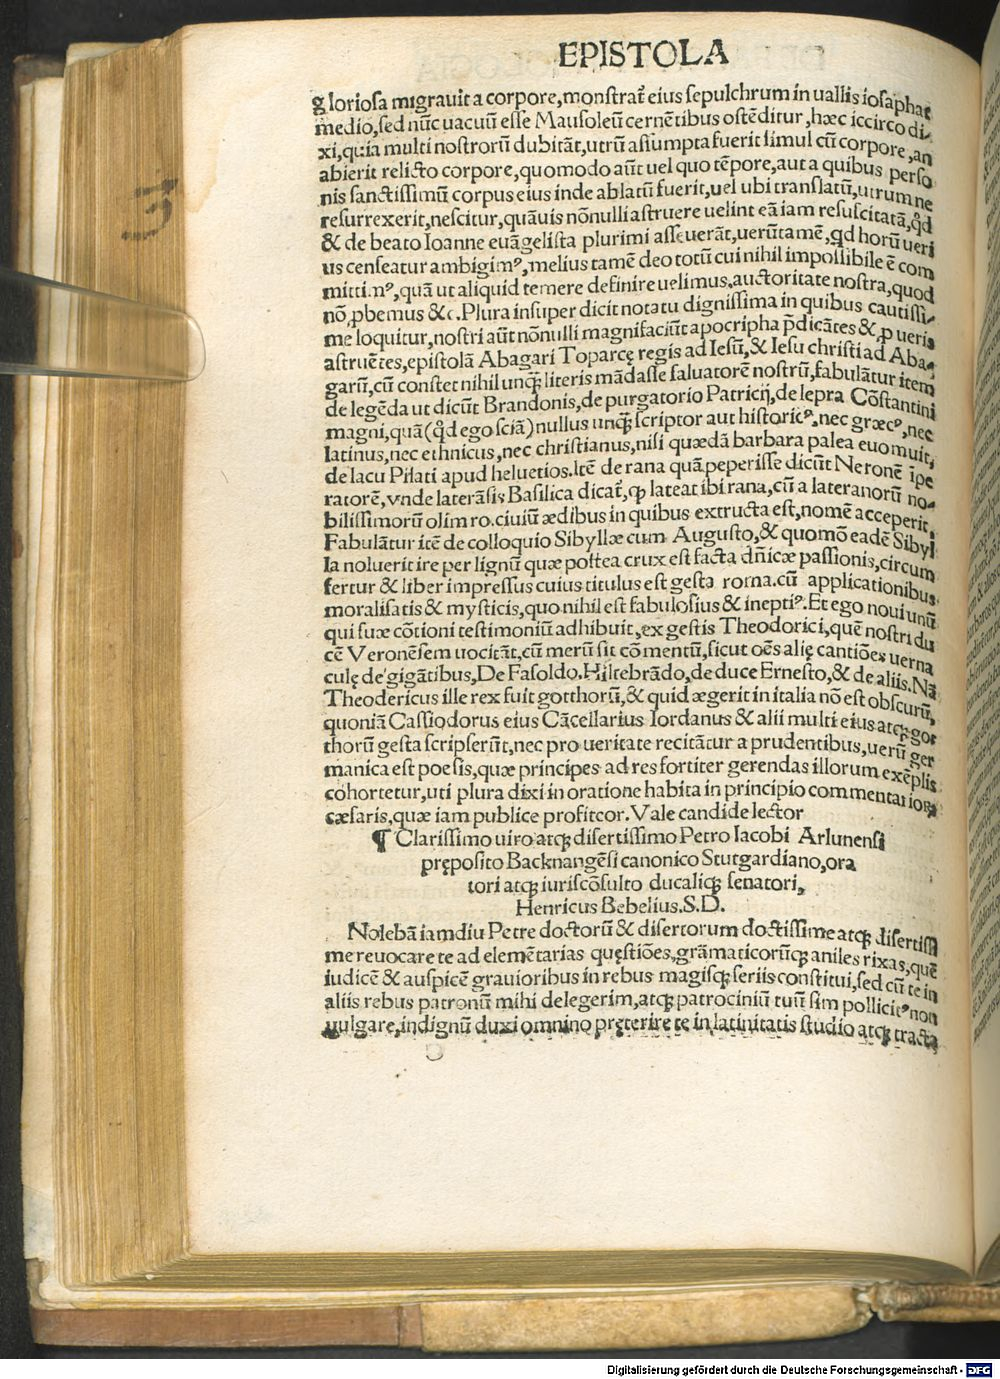 EPISTOLA
gloriosa migravit a corpore, monstrat̃ eius sepulchrum in uallis iosaphat
medio, sed nũc uacuũ esse Mausoleũ cernẽtibus ostẽditur, hæc iccirco di-
xi, quia multi nostrorũ dubitãt, utrũ assumpta fuerit simul cũ corpore, an
abierit relicto corpore, quomodo aũt uel quo tẽpore, aut a quibus perso
nis sanctissimũ corpus eius inde ablatũ fuerit, uel ubi translatũ, utrum ne
resurrexerit, nescitur, quãuis nõnulli astruere uelint eã iam resuscitatã, qd̛
& de beato Ioanne euãgelista plurimi asseuerãt, uerũtamẽ, qd horũ ueri
us censeatur ambigimꝰ, melius tamẽ deo totũ cui nihil impossibile ẽ com
mittimꝰ, quã ut aliquid temere definire uelimus. auctoritate nostra, quod
nõ ꝓbemus &c. Plura insuper dicit notatu dignissima in quibus cautissi-
me loquitur, nostri aũt nõnulli magnifaciũt apocripha p̃dicãtes & ꝓ ueris
astruẽtes, epistolã Abagari Toparcę regis ad Iesũ, & Iesu christi ad Aba-
garũ, cũ constet nihil unꝙ̃ literis mãdasse saluatorẽ nostrũ, fabulãtur item
de legẽda ut dicũt Brandonis, de purgatorio Patricij, de lepra Cõstantini
magni, quã (qd̛ ego sciã) nullus unꝙ̃ scriptor aut historicꝰ, nec græcꝰ, nec
latinus, nec ethnicus, nec christianus, nisi quædã barbara palea euomuit,
de lacu Pilati apud heluetios. Itẽ de rana quã peperisse dicũt Neronẽ ĩpe
ratorẽ, vnde laterãsis Basilica dicat̃, ꝙ lateat ibi rana, cũ a lateranorũ no-
bilissimorũ olim ro. ciuiũ ædibus in quibus extructa est, nomẽ acceperit,
Fabulãtur itẽ de colloquio Sibyllæ cum Augusto, & quomõ eadẽ Sibyl
la noluerit ire per lignũ quæ postea crux est facta dñicæ passionis, circum
fertur & liber impressus cuius titulus est gesta roma. cũ applicationibus
moralisatis & mysticis, quo nihil est fabulosius & ineptiꝰ. Et ego noui unũ
qui suæ cõtioni testimoniũ adhibuit, ex gestis Theodorici, quẽ nostri du
cẽ Veronẽsem uocitãt, cũ merũ sit cõmentũ, sicut oẽs alię cantiões uerna
culę de gigãtibus, De Fasoldo. Hiltebrãdo, de duce Ernesto, & de aliis. Nã
Theodericus ille rex fuit gotthorũ, & quid ægerit in italia nõ est obscurũ,
quoniã Cassiodorus eius Cãcellarius Iordanus & alii multi eius atꝗ got
thorũ gesta scripserũt, nec pro ueritate recitãtur a prudentibus, uerũ ger
manica est poesis, quæ principes ad res fortiter gerendas illorum exẽplis
cohortetur, uti plura dixi in oratione habita in principio commentariorꝝ
cæsaris, quæ iam publice profiteor. Vale candide lector
¶ Clarissimo uiro atꝗ disertissimo Petro Iacobi Arlunensi
pręposito Backnangẽsi canonico Stutgardiano, ora
tori atꝗ iuriscõsulto ducaliꝗ senatori,
Henricus Bebelius. S. D.
Nolebã iamdiu Petre doctorũ & disertorum doctissime atꝗ disertissi
me reuocare te ad elemẽtarias quęstiões, grãmaticorũꝗ aniles rixas, quẽ
iudicẽ & auspicẽ grauioribus in rebus magisꝗ seriis constitui, sed cũ te in
aliis rebus patronũ mihi delegerim, atꝗ patrociniũ tuũ sim pollicitꝰ non
uulgare, indignũ duxi omnino pręterire te in latinitatis studio atꝗ tracta
Digitalisierung gefördert durch die Deutsche Forschungsgemeinschaft - DFG